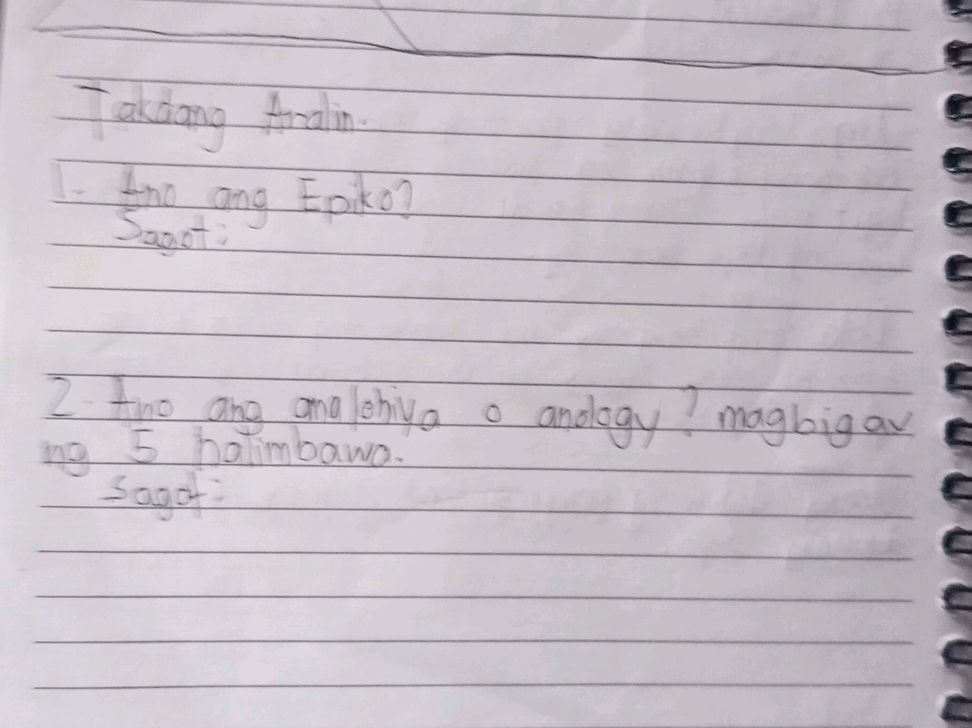 Takdang Aralin.
1. Ano ang Epiko?
Sagot:
2. Ano ang analohiya o analogy? magbigay
ng 5 halimbawa.
Sagot: